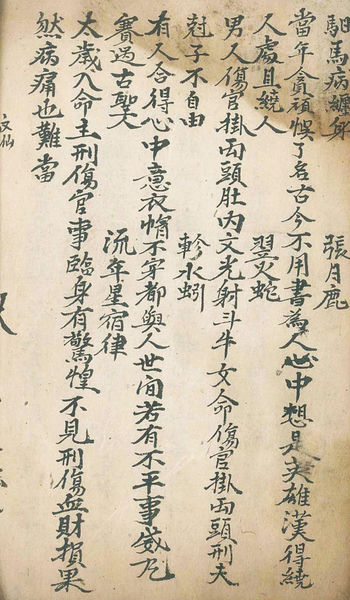 馹馬病纏身 張月鹿
當年貪頑悞了名古今不用書為人心中想是英雄漢得繞
人處且繞人 翌火蛇
男人傷官掛両頭肚内文光射斗牛女命傷官掛両頭刑夫
尅子不自由 軫水蚓
有人合得心中意衣惰不穿都與人世间若有不平事威
賽過古聖人 流年星宿律
太歲入命主刑傷官事臨身有驚惶不見刑傷血財損果
然病痛也難當